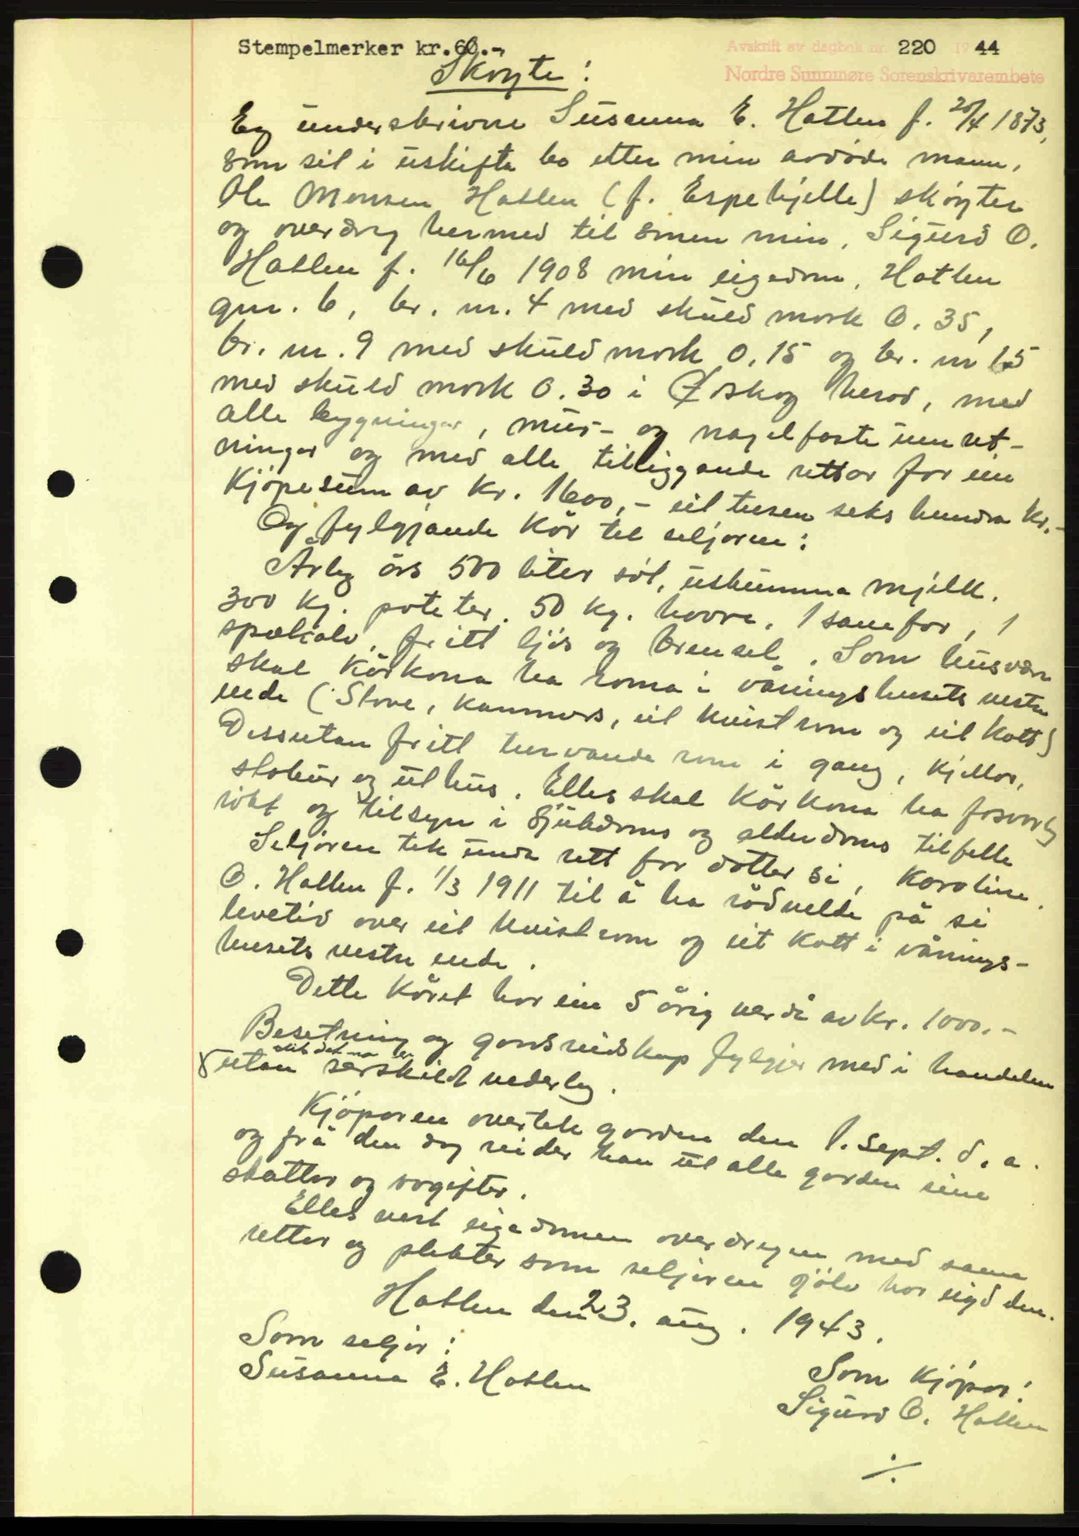 Stempelmerker kr. 60.-
Avskrift av dagbok nr. 220 1944
Nordre Sunnmøre Sorenskrivarembete
Skøyte:
Eg underskrivne Susanna E. Hatlen f. 20/4 1873,
som sit i uskifta bo etter min avdøde mann,
Ole Monsen Hatlen (f. Espehjelle) skøyter
og overdreg hermed til sonen min, Sigurd O.
Hatlen f. 16/6 1908 min eigedom, Hatlen
gnr. 6, br. nr. 4 med skuld mork 0.35,
br. nr. 9 med skuld mork 0.15 og br. nr 15
med skuld mork 0.30 i Ørskog herad, med
alle bygningar, mur- og nagelfaste innret-
ningar og med alle tilliggande rettar for ein
Kjøpesum av kr. 1600,- eit tusen seks hundra kr.-
Og fylgjande kår til seljaren:
Årleg års 500 liter søt, uskumma mjølk.
300 kg. poteter. 50 kg. havre, 1 sauefor, 1
spækalv, fritt ljos og brensel. Som husvære
skal kårkona ha roma i våningshusets vestre
ende (Stove, kammers, eit kvistrom og eit kott)
Dessutan fritt turvande rom i gang, kjellar,
stabur og uthus. Elles skal kårkona ha forsvarleg
røkt og tilsyn i sjukdoms og alderdoms tilfelle
Seljaren tek unda rett for dotter si, Karoline
O. Hatlen f. 1/3 1911 til å ha rådvelde på si
levetid over eit kvistrom og eit kott i vånings-
husets vestre ende.
Dette kåret har ein 5 årig verdi av kr. 1000.-
Besetning og gardsreidskap fylgjer med i handelen
slik det no er
utan særskild vederlag.
Kjøparen overtek garden den 1. sept. d. a.
og frå den dag reider han ut alle garden sine
skattar og avgifter.
Elles vert eigedomen overdregen med same
rettar og plikter som seljaren sjølv har eigd den.
Hatlen den 23. aug. 1943.
Som seljar:
Susanna E. Hatlen
Som kjøpar:
Sigurd O. Hatlen
./.